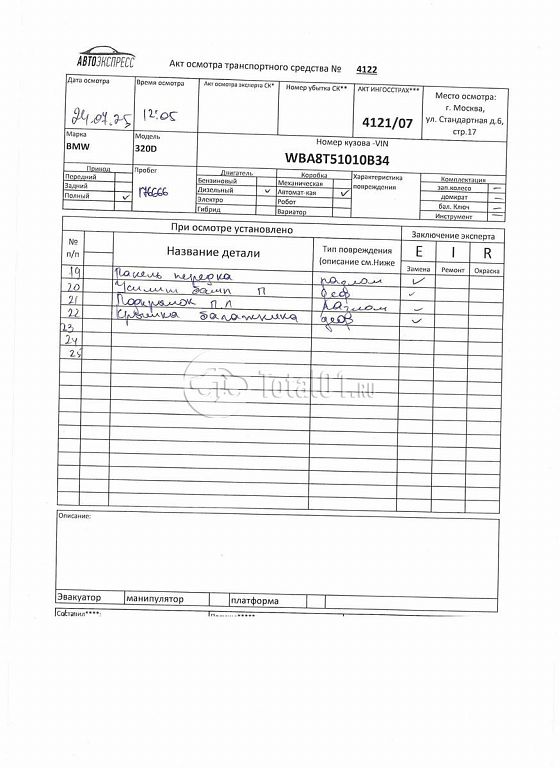 АВТОЭКСПРЕСС
Акт осмотра транспортного средства № 4122
Дата осмотра
24.07.25
Время осмотра
12:05
Акт осмотра эксперта СК*
Номер убытка СК**
АКТ ИНГОССТРАХ***
4121/07
Место осмотра:
г. Москва,
ул. Стандартная д.6,
стр.17
Марка
BMW
Модель
320D
Номер кузова -VIN
WBA8T51010B34
Привод
Передний
Задний
Полный ✓
Пробег
176666
Двигатель
Бензиновый
Дизельный ✓
Электро
Гибрид
Коробка
Механическая
Автомат-кая ✓
Робот
Вариатор
Характеристика
повреждения
Комплектация
зап.колесо —
домкрат —
бал. Ключ —
Инструмент —
При осмотре установлено
Заключение эксперта
№
п/п
Название детали
Тип повреждения
(описание см.Ниже
E I R
Замена Ремонт Окраска
19 Панель передка разлом ✓
20 Усилит бамп П деф ✓
21 Подкрылок П.Л разлом ✓
22 Крышка багажника деф ✓
23
24
25
Total01.RU
Описание:
Эвакуатор манипулятор платформа
Составил****: